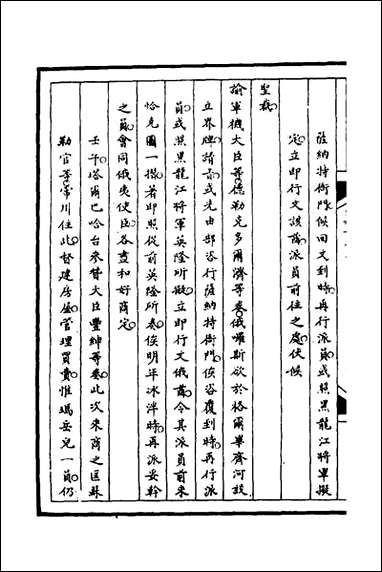 薩納特衙門候回文到時再行派員或照黑龍江將軍擬
定立即行文該薩派員前往之處伏候
聖裁
諭軍機大臣等德勒克多爾濟等奏俄囉斯欲於格爾畢齊河設
立界牌請旨或先由部咨行薩納特衙門俟咨覆到時再行派
員或照黑龍江將軍英隆所擬立即行文俄薩令其派員前來
恰克圖一摺著即照從前英隆所奏俟明年冰泮時再派妥幹
之員會同俄夷使臣各查和好商定
壬午塔爾巴哈台參贊大臣豐紳等奏此次來商之匡蘇
勒官等常川住此督建房屋管理買賣惟瑪岳兒一員仍